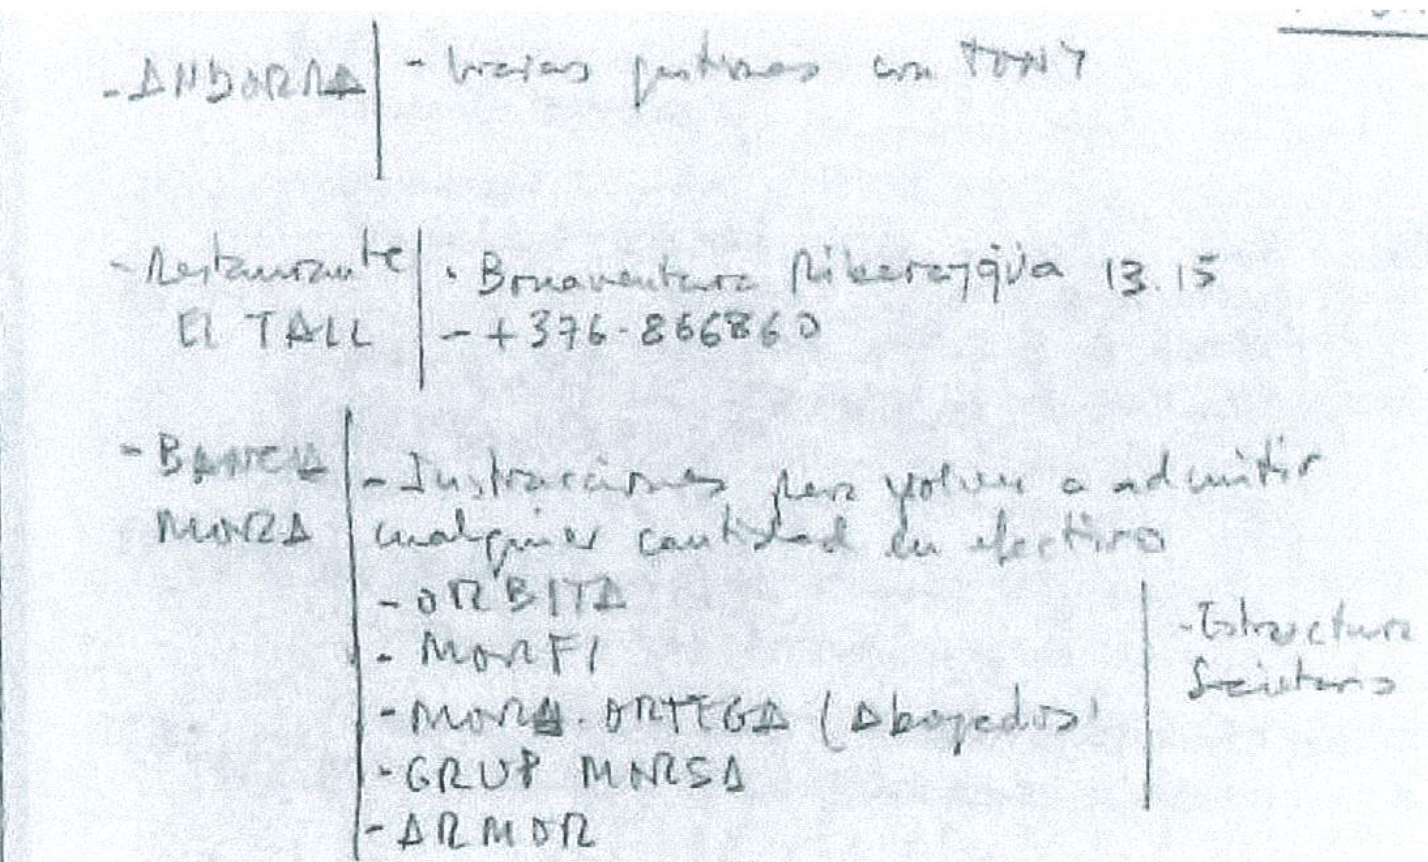 - ANDORRA - Varias gestiones con TONY
- Restaurante - Bonaventura Riberaygüa 13.15
EL TALL - +376-866860
- BANCA - Instrucciones para volver a admitir
MORA cualquier cantidad en efectivo
- ORBITA
- MORFI - Estructura
- MORA-ORTEGA (Abogados) Societaria
- GRUP MORSA
- ARMOR